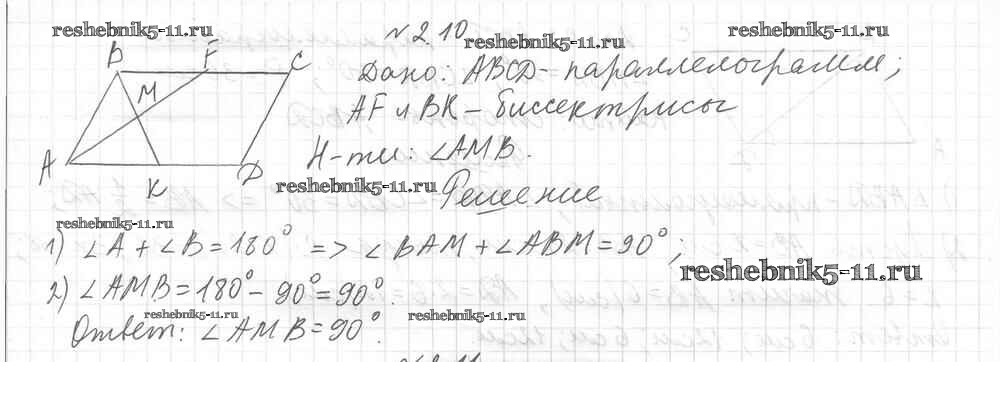 reshebnik5-11.ru
№ 2.10
reshebnik5-11.ru
reshebnik5-11.ru
B F C
M
A K D
Дано: ABCD - параллелограмм;
AF и BK - биссектрисы
Н-ти: ∠AMB.
reshebnik5-11.ru
Решение
reshebnik5-11.ru
1) ∠A + ∠B = 180° => ∠BAM + ∠ABM = 90°;
reshebnik5-11.ru
2) ∠AMB = 180° - 90° = 90°.
reshebnik5-11.ru
reshebnik5-11.ru
Ответ: ∠AMB = 90°.